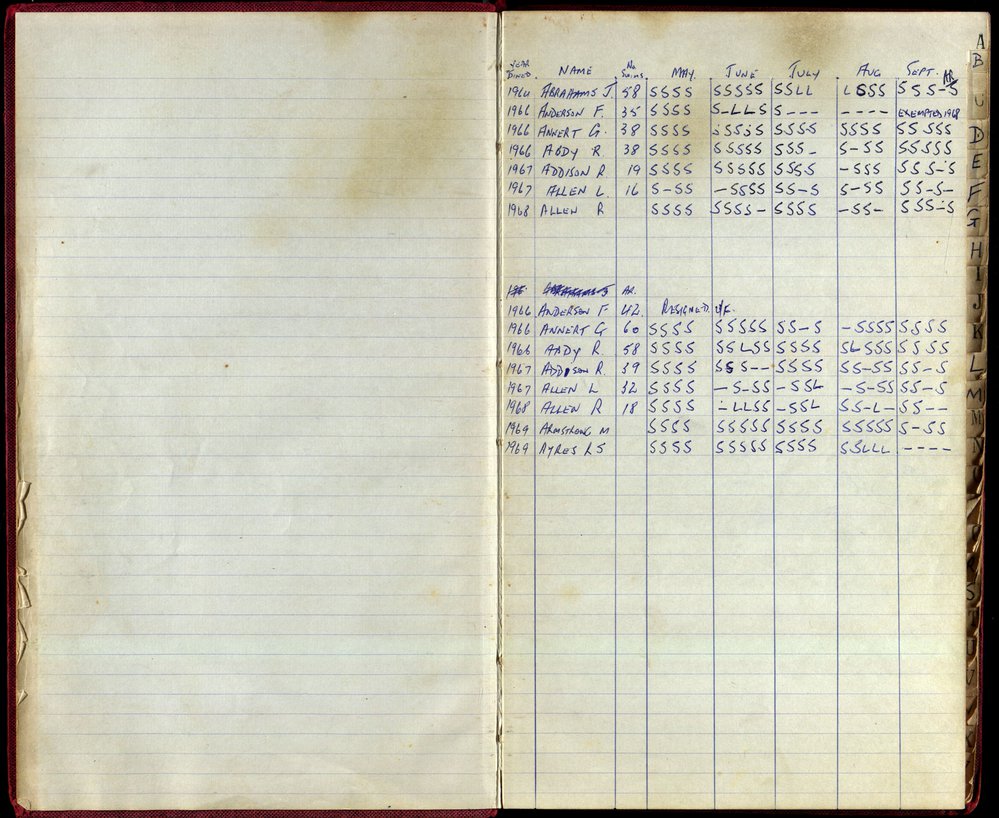 YEAR JOINED. NAME No. SWIMS MAY. JUNE JULY AUG SEPT. AR.
1964 ABRAHAMS J. 58 SSSS SSSSS SSLL LSSS SSS-S
1966 ANDERSON F. 35 SSSS S-LLS S--- ---- EXEMPTED 1968
1966 ANNERT G. 38 SSSS SSSS SSSS SS SSS
1966 ABDY R. 38 SSSS SSSSS SSS- S-SS SSSSS
1967 ADDISON R 19 SSSS SSSSS SSSS -SSS SSS-S
1967 ALLEN L. 16 S-SS -SSSS SS-S S-SS SS-S-
1968 ALLEN R SSSS SSSS- SSSS -SS- SSS-S
AR.
1966 ANDERSON F 42. RESIGNED
1966 ANNERT G 60 SSSS SSSSS SS-S -SSSS SSSS
1966 ABDY R. 58 SSSS SSLSS SSSS SLSSS SSSS
1967 ADDISON R. 39 SSSS SSS-- SSSS SS-SS SS-S
1967 ALLEN L 32 SSSS -S-SS -SSL -S-SS SS-S
1968 ALLEN R 18 SSSS -LLSS -SSL SS-L- SS--
1969 ARMSTRONG M SSSS SSSSS SSSS SSSSS S-SS
1969 AYRES L S SSSS SSSSS SSSS SSLLL ----
A
B
C
D
E
F
G
H
I
J
K
L
M
M
N
P
S
T
U
V